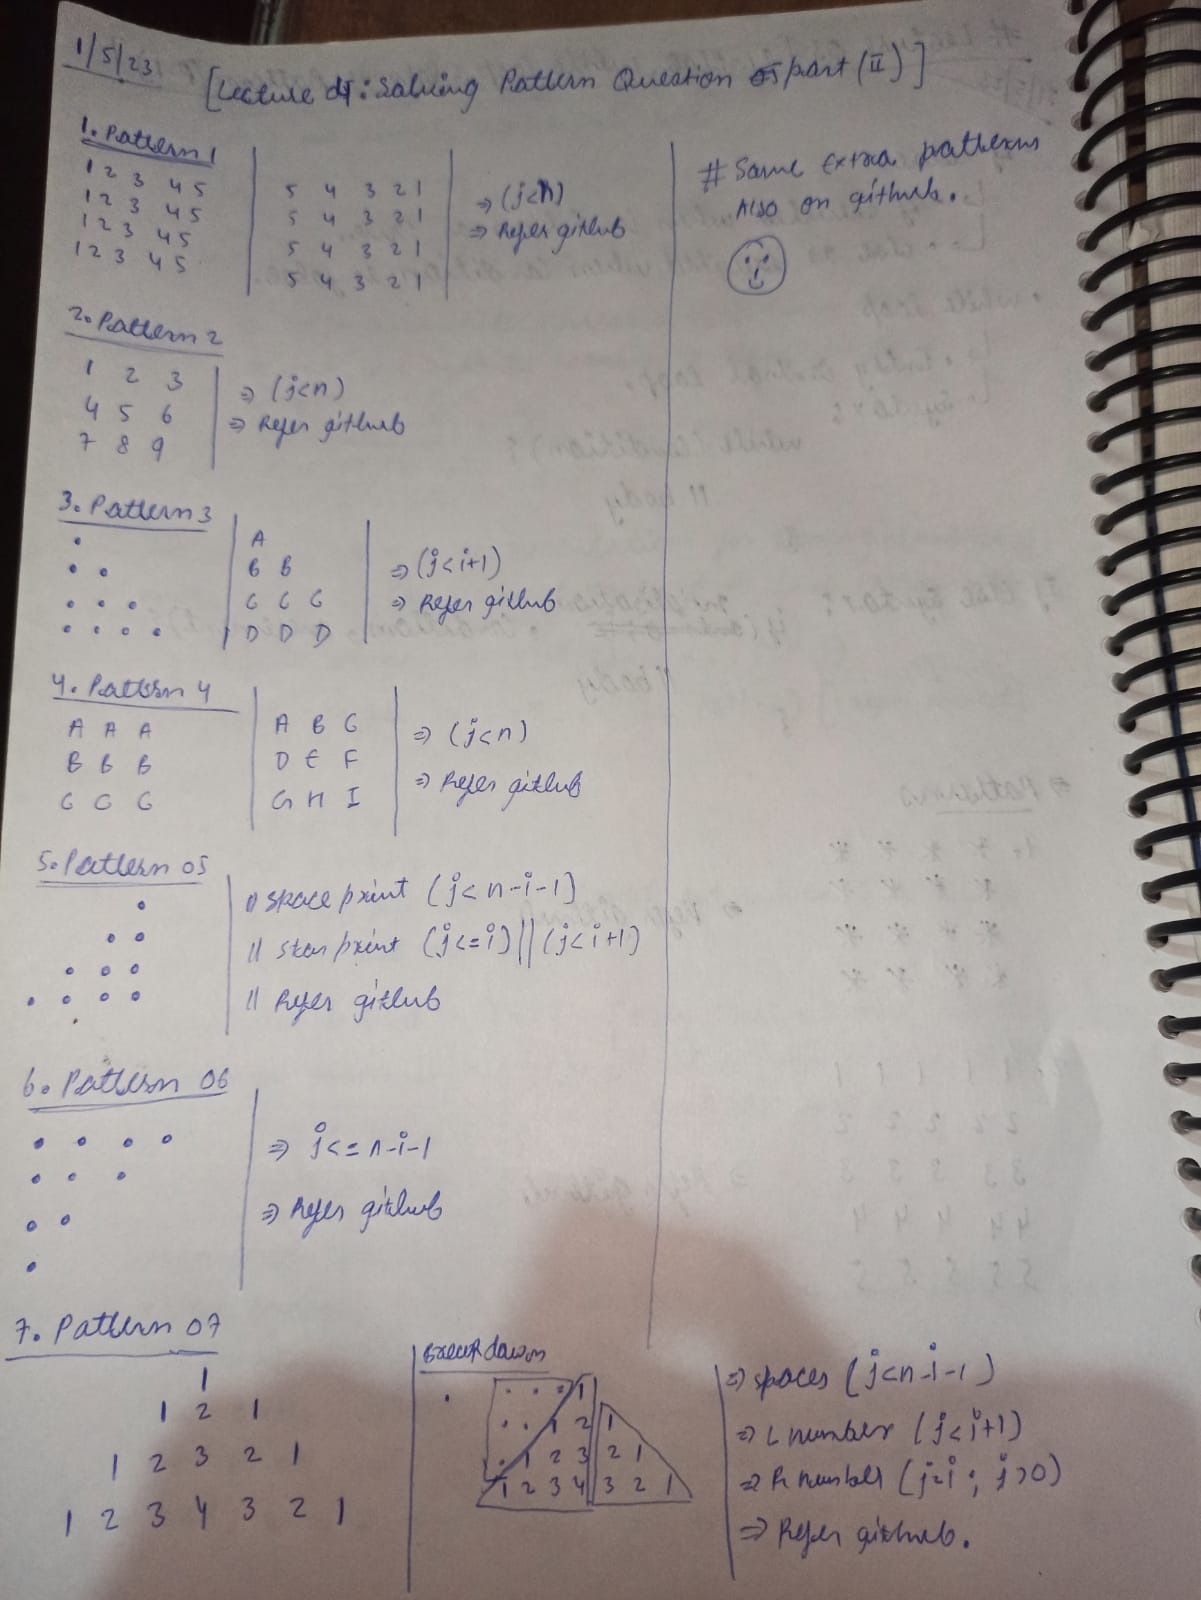 1/5/23
[Lecture : Solving Pattern Question part (II)]
1. Pattern 1
1 2 3 4 5
1 2 3 4 5
1 2 3 4 5
1 2 3 4 5
5 4 3 2 1
5 4 3 2 1
5 4 3 2 1
5 4 3 2 1
⇒ (j<n)
⇒ Refer github
# Same Extra patterns
Also on github.
2. Pattern 2
1 2 3
4 5 6
7 8 9
⇒ (j<n)
⇒ Refer github
3. Pattern 3
•
• •
• • •
• • • •
A
B B
C C C
D D D
⇒ (j<i+1)
⇒ Refer github
4. Pattern 4
A A A
B B B
C C C
A B C
D E F
G H I
⇒ (j<n)
⇒ Refer github
5. Pattern 05
•
• •
• • •
• • • •
// space print (j<n-i-1)
// star print (j<=i)||(j<i+1)
// Refer github
6. Pattern 06
• • • •
• • •
• •
•
⇒ j<=n-i-1
⇒ Refer github
7. Pattern 07
1
1 2 1
1 2 3 2 1
1 2 3 4 3 2 1
Breakdown
• • • 1
• • 1 2 1
• 1 2 3 2 1
1 2 3 4 3 2 1
⇒ spaces (j<n-i-1)
⇒ L number (j<i+1)
⇒ R number (j=i; j>0)
⇒ Refer github.